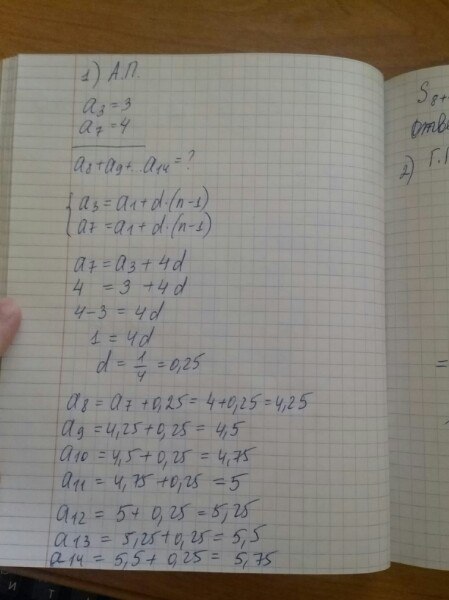 1) А.П.
a3 = 3
a7 = 4
a8+a9+...a14 = ?
{ a3 = a1 + d·(n-1)
a7 = a1 + d·(n-1)
a7 = a3 + 4d
4 = 3 + 4d
4-3 = 4d
1 = 4d
d = 1/4 = 0,25
a8 = a7 + 0,25 = 4+0,25 = 4,25
a9 = 4,25+0,25 = 4,5
a10 = 4,5 + 0,25 = 4,75
a11 = 4,75 + 0,25 = 5
a12 = 5 + 0,25 = 5,25
a13 = 5,25+0,25 = 5,5
a14 = 5,5 + 0,25 = 5,75
S8+
отве
2) Г.П
=